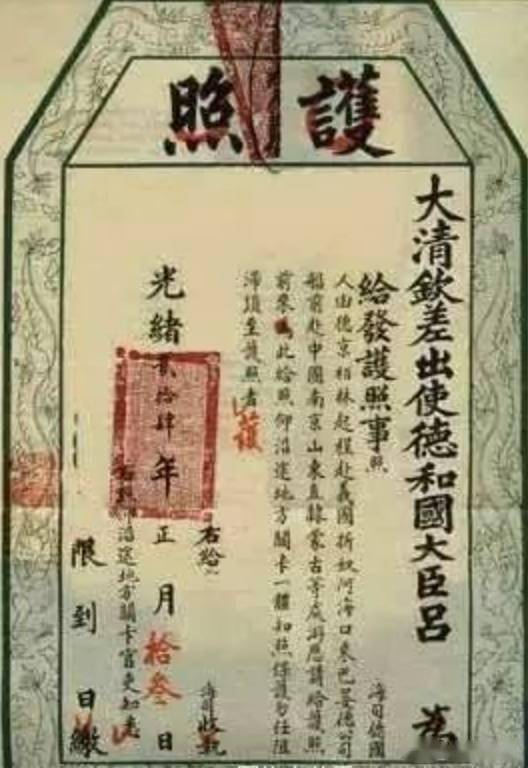 護照
大清欽差出使德和國大臣呂 為
給發護照事照 海司德國
人由德京柏林起程赴義國折奴阿海口乘巴晏德公司
船前赴中國南京山東直隸蒙古等處游歷請給護照
前來此給照仰沿途地方關卡一體知照保護勿任阻
滯須至護照者 護
右給 海司收執
光緒貳拾肆年正月拾叁日
沿途地方關卡官吏知悉
限到 日繳